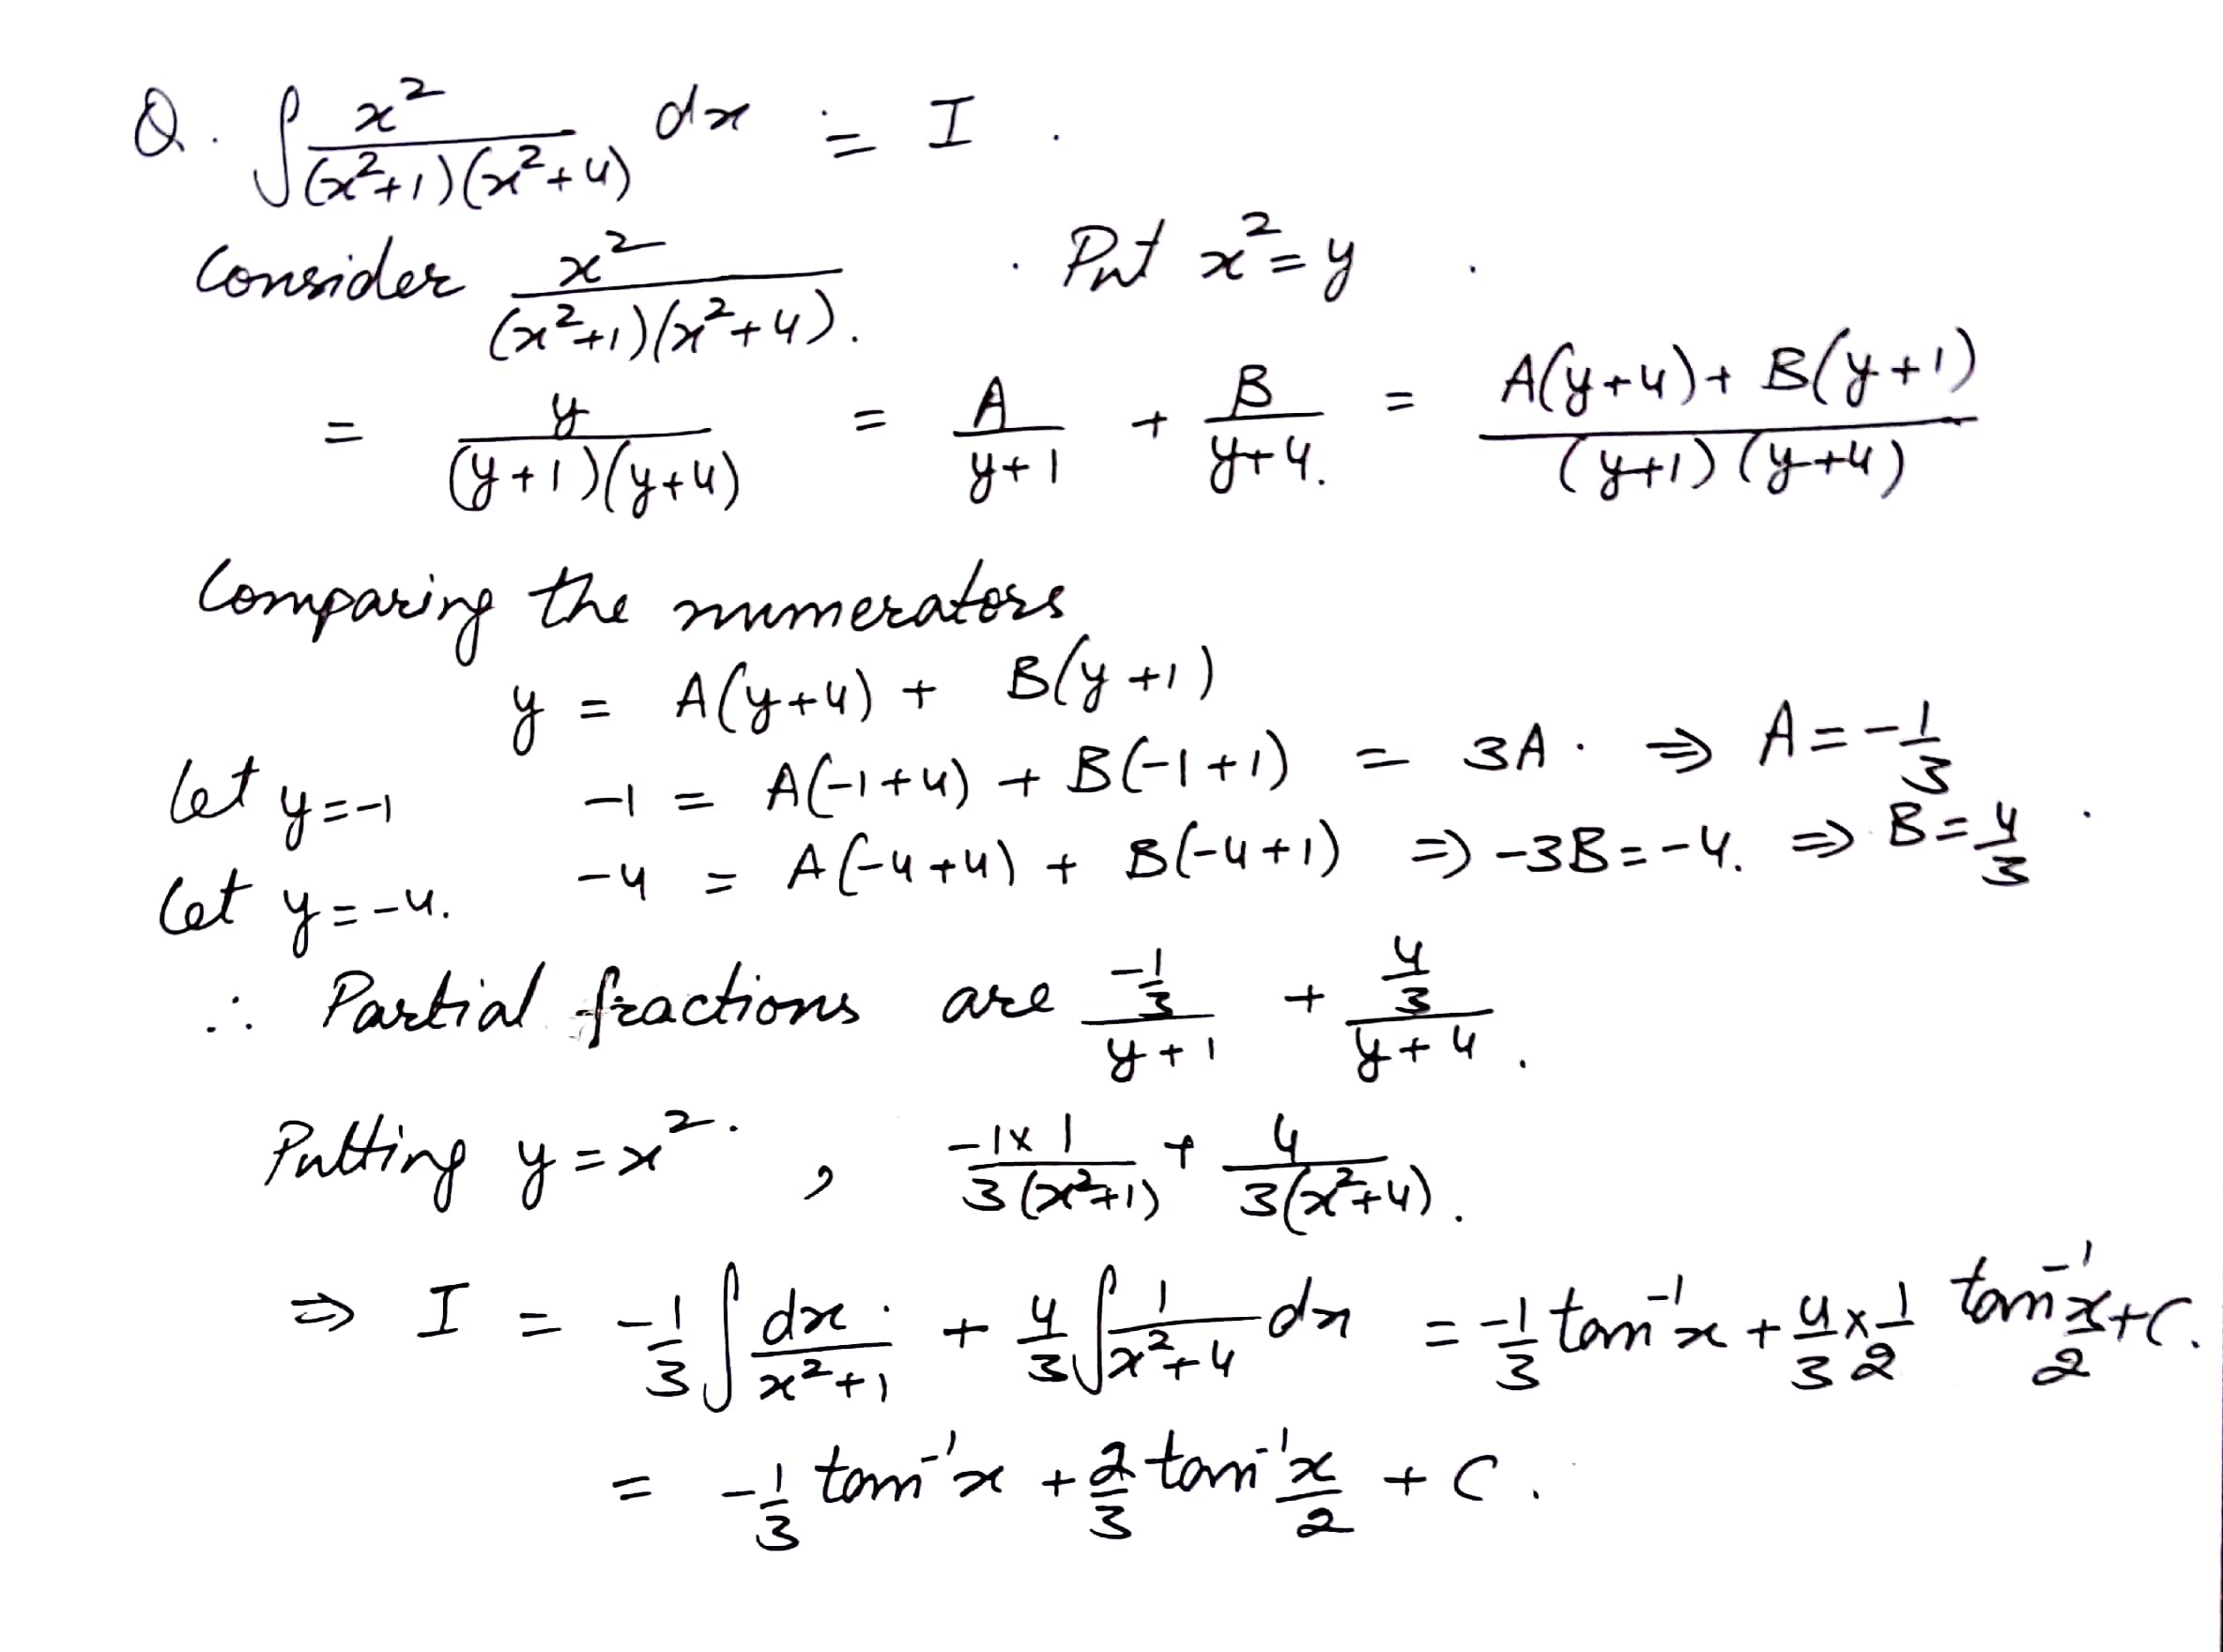 Q. ∫ x²/((x²+1)(x²+4)) dx = I .
Consider x²/((x²+1)(x²+4)). . Put x² = y .
= y/((y+1)(y+4)) = A/(y+1) + B/(y+4). = (A(y+4) + B(y+1))/((y+1)(y+4))
Comparing the numerators
y = A(y+4) + B(y+1)
Let y=-1 -1 = A(-1+4) + B(-1+1) = 3A . ⇒ A = -1/3
Let y=-4. -4 = A(-4+4) + B(-4+1) ⇒ -3B = -4. ⇒ B = 4/3 .
∴ Partial fractions are (-1/3)/(y+1) + (4/3)/(y+4) .
Putting y = x² . , (-1×1)/(3(x²+1)) + 4/(3(x²+4)) .
⇒ I = -1/3 ∫ dx/(x²+1) + 4/3 ∫ 1/(x²+4) dx = -1/3 tan⁻¹x + 4/3 × 1/2 tan⁻¹ x/2 + C.
= -1/3 tan⁻¹x + 2/3 tan⁻¹ x/2 + C .